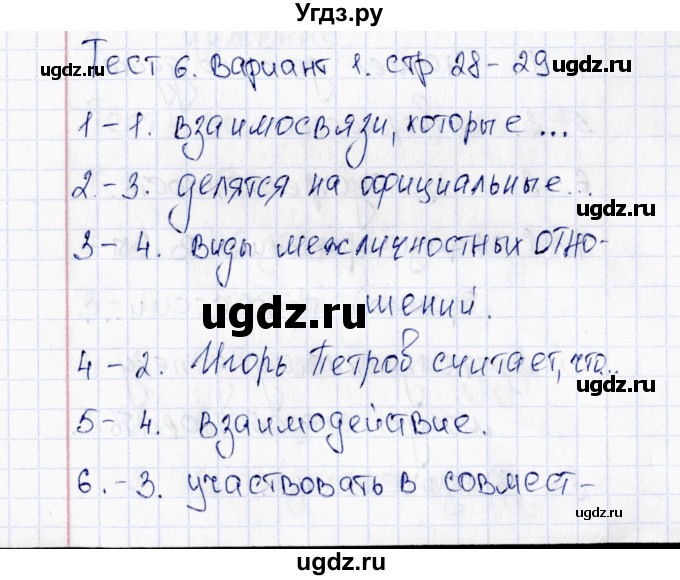 Угдз.ру
Тест 6. Вариант 1. стр 28-29
угдз.ru
угдз.ru
1-1. взаимосвязи, которые ...
2.-3. делятся на официальные...
угдз.ru
3-4. виды межличностных отно-
угдз.ru
шений.
4-2. Игорь Петров считает, что..
угдз.ru
5-4. взаимодействие.
6.-3. участвовать в совмест-
угдз.ru
угдз.ru